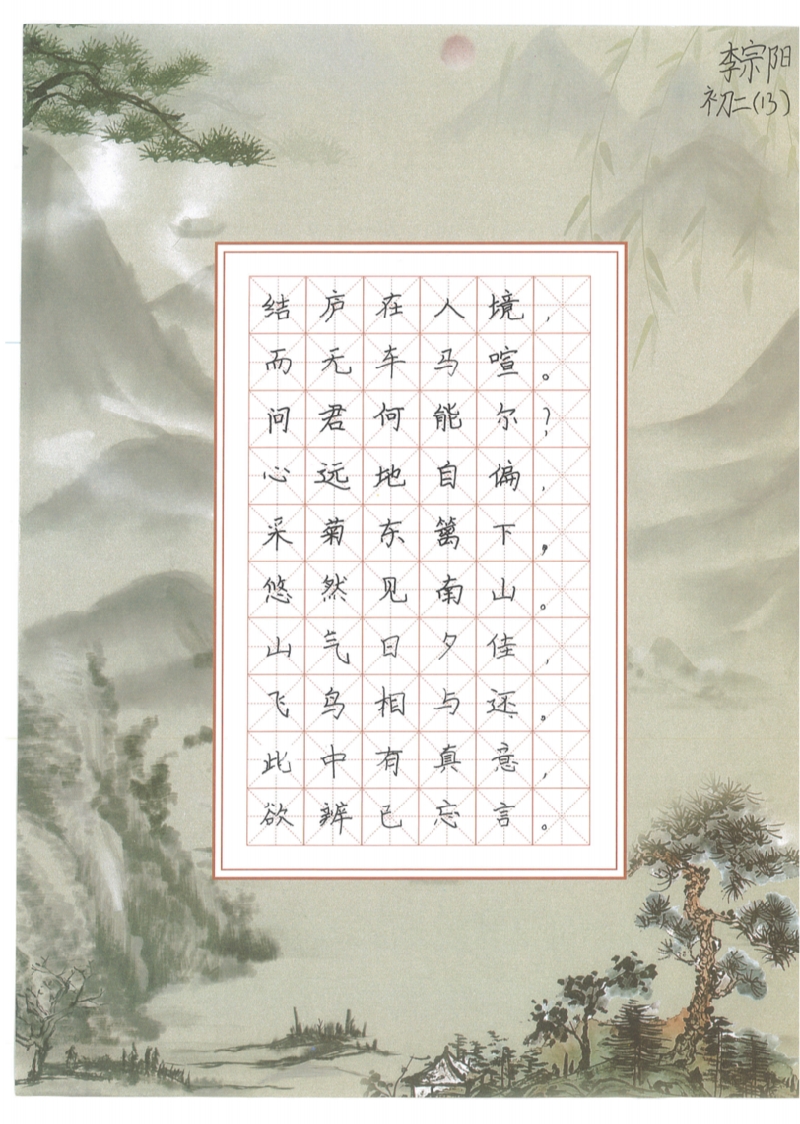 李宗阳
初二(13)
结庐在人境，
而无车马喧。
问君何能尔？
心远地自偏，
采菊东篱下，
悠然见南山。
山气日夕佳，
飞鸟相与还。
此中有真意，
欲辨已忘言。